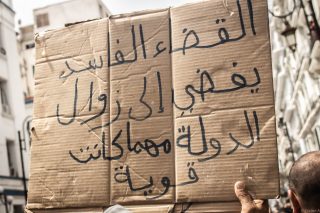 القضاء الفاسد
يفضي إلى زوال
الدولة مهما كانت
قوية